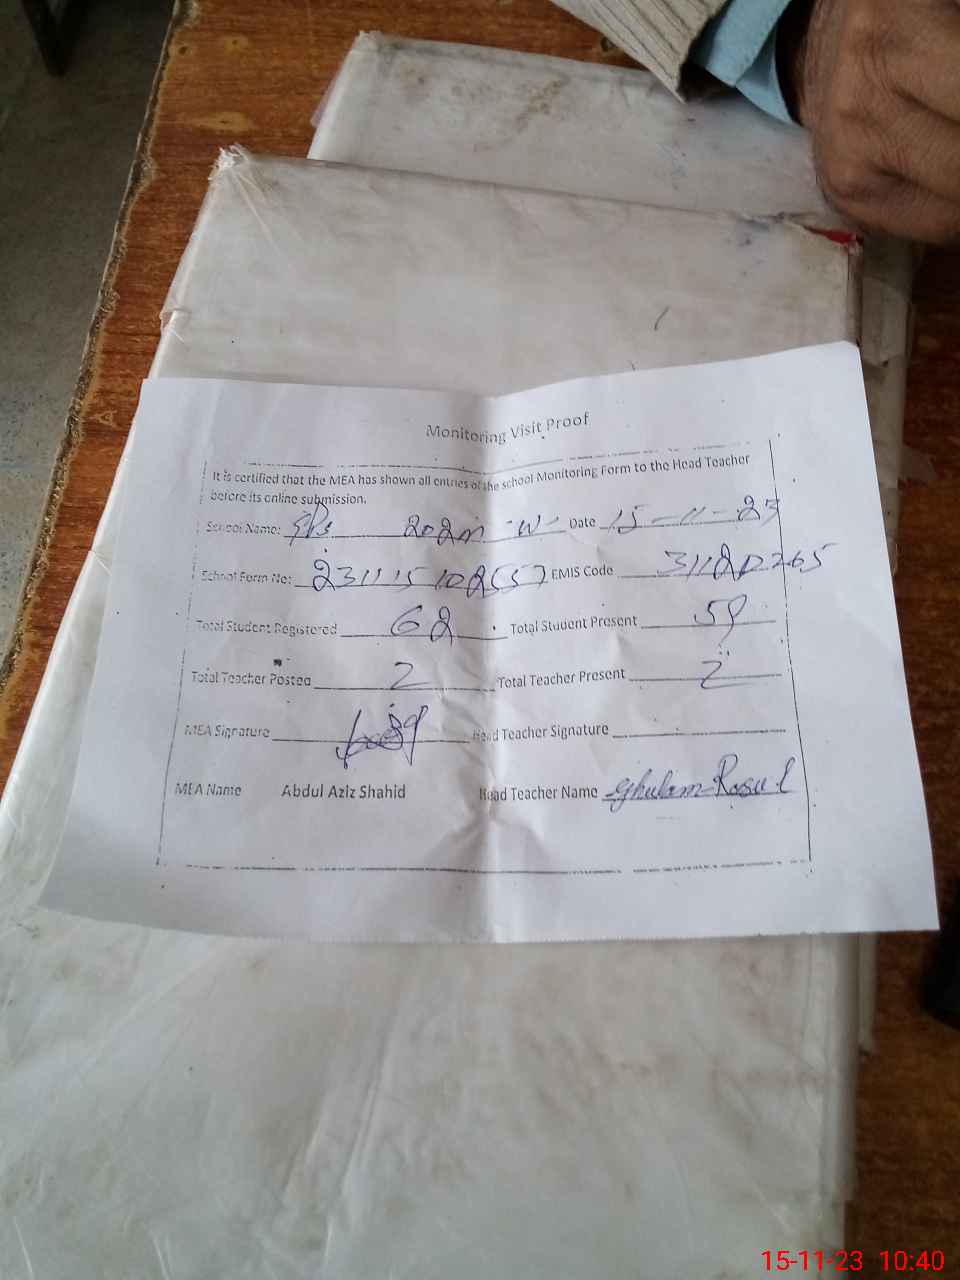 Monitoring Visit Proof
It is certified that the MEA has shown all entries of the school Monitoring Form to the Head Teacher
before its online submission.
School Name: 202m W Date 15-11-23
School Form No: EMIS Code
Total Student Registered 62 Total Student Present 59
Total Teacher Posted 2 Total Teacher Present 2
MEA Signature Head Teacher Signature
MEA Name Abdul Aziz Shahid Head Teacher Name Ghulam Rasul
15-11-23 10:40